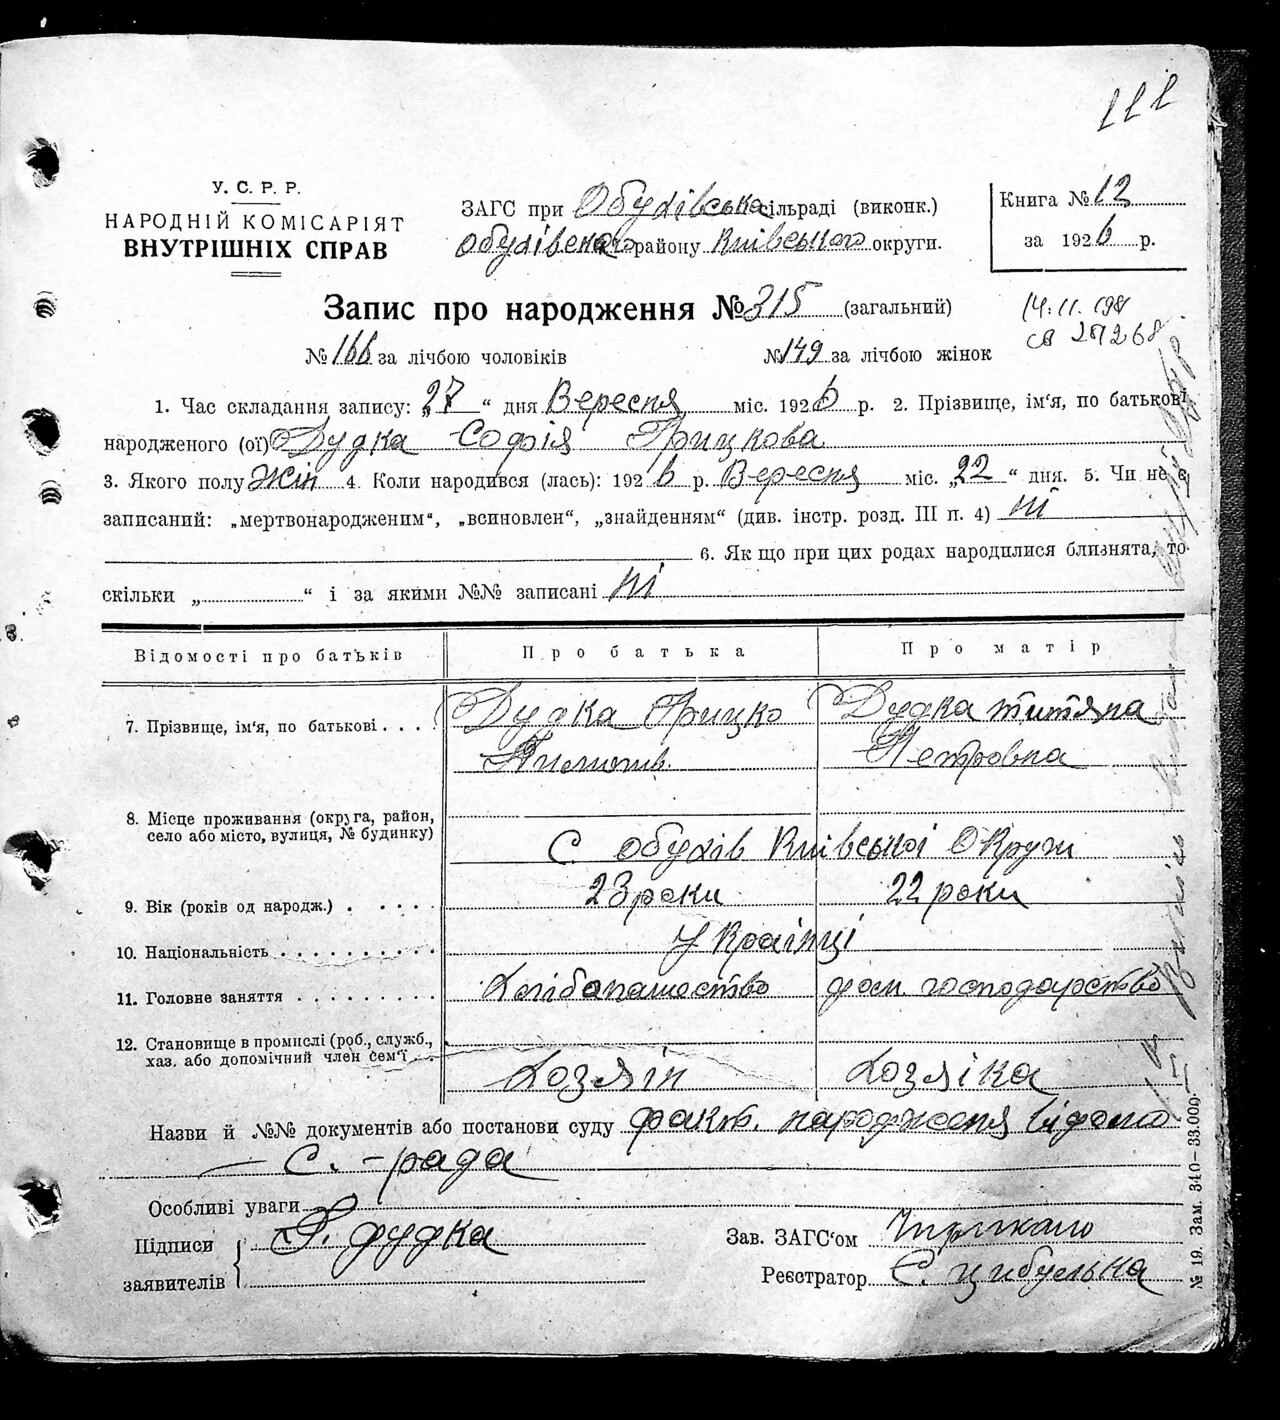 111
У. С. Р. Р.
НАРОДНІЙ КОМІСАРІЯТ
ВНУТРІШНІХ СПРАВ
ЗАГС при Обухівська сільраді (виконк.)
Обухівського району Київського округи.
Книга № 12
за 1926 р.
Запис про народження № 315 (загальний)
14.11.1981
№ 166 за лічбою чоловіків № 149 за лічбою жінок
1. Час складання запису: „27“ дня Вересня міс. 1926 р. 2. Прізвище, ім'я, по батькові
народженого (ої) Дудка Софія Грицкова
3. Якого полу Жін 4. Коли народився (лась): 1926 р. Вересня міс. „22“ дня. 5. Чи не є
записаний: „мертвонародженим“, „всиновлен“, „знайденням“ (див. інстр. розд. III п. 4) Ні
6. Як що при цих родах народилися близнята, то
скільки „ “ і за якими №№ записані Ні
Відомості про батьків Про батька Про матір
7. Прізвище, ім'я, по батькові . . . . Дудка Грицко Дудка титяна
Петровна
8. Місце проживання (округа, район,
село або місто, вулиця, № будинку)
С Обухів Київської Округи
9. Вік (років од народж.) . . . . . 23 роки 22 роки
10. Національність . . . . . . . . . . Українці
11. Головне заняття . . . . . . . . . Хлібопашество дом. господарство
12. Становище в промислі (роб., служб.,
хаз. або допомічний член сем'ї . . . Хозяін Хозяіка
Назви й №№ документів або постанови суду факт. народженя відомо
С. -рада
Особливі уваги
Підписи
заявителів
Г. Дудка
Зав. ЗАГС'ом
Реєстратор Є. Цибулька
№ 19. Зам. 340—33.000.